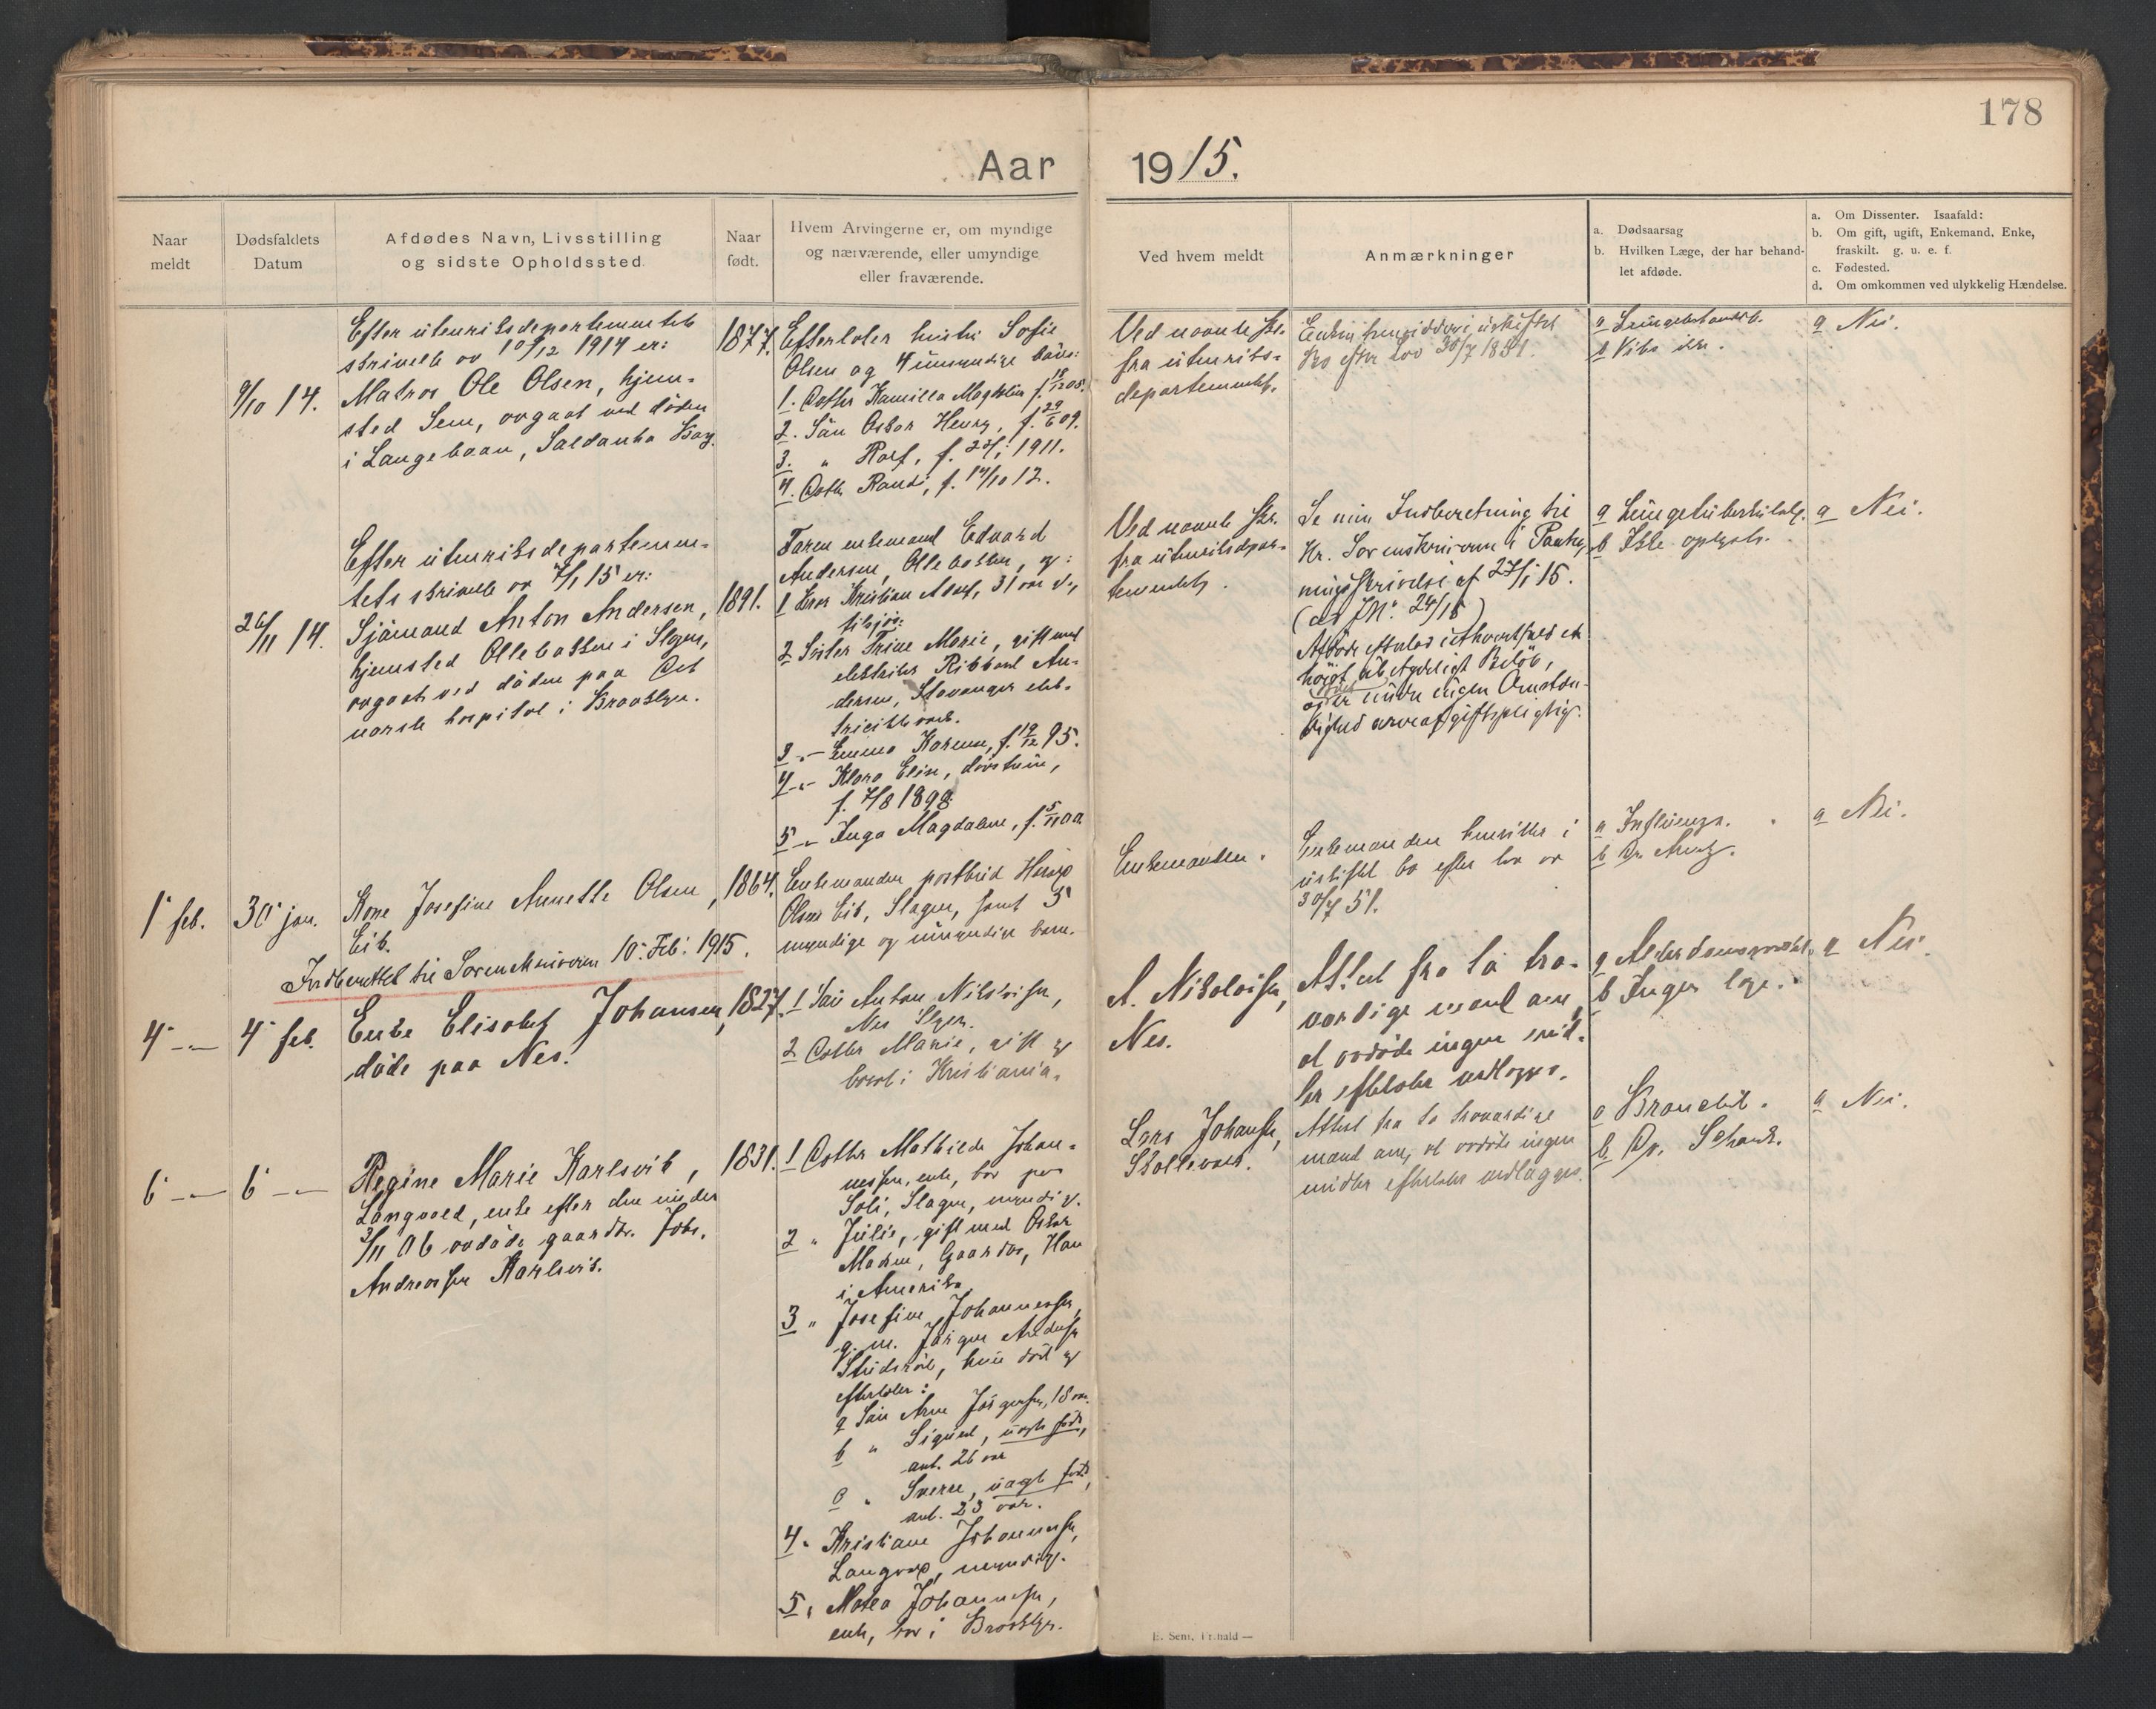 178
Aar 1915.
Naar meldt
Dødsfaldets Datum
Afdødes Navn, Livsstilling og sidste Opholdssted
Naar født.
Hvem Arvingerne er, om myndige og nærværende, eller umyndige eller fraværende.
Ved hvem meldt
Anmærkninger
a. Dødsaarsag
b. Hvilken Læge, der har behandlet afdøde.
a. Om Dissenter. Isaafald:
b. Om gift, ugift, Enkemand, Enke, fraskilt. g. u. e. f.
c. Fødested.
d. Om omkommen ved ulykkelig Hændelse.
9/10 14.
Efter utenriksdepartementets
skrivelse av 10/12 1914 er:
Matros Ole Olsen, hjem-
sted Sem, avgaat ved døden
i Langebaan, Saldanha Bay.
1877.
Efterlater hustru Sofie
Olsen og 4 umyndige barn:
1. Datter Kamilla Magdalin f. 18/12 05.
2. Søn Oskar Henry, f. 29/6 09.
3. " Rolf, f. 1911.
4. Datter Randi, f. 14/10 12.
Ved nævnte skr.
fra utenriks-
departementet.
Enken hensidder i uskiftet
Bo efter lov 30/7 1851.
b Vites ikke.
a Nei.
26/11 14.
Efter utenriksdepartemen-
tets skrivelse av 7/1 15 er:
Sjømand Anton Andersen,
hjemsted Ollebakken i Slagen,
avgaat ved døden paa Det
norske hospital i Brooklyn.
1891.
Faren enkemand Edvard
Andersen, Ollebakken, og:
1 Bror Kristian Adolf, 31 aar g.,
tilsjøs:
2 Søster Trine Marie, gift med
elektriker Rikkard An-
dersen, Stavanger elek-
tricitetsverk.
3 -"- Emma Karense, f. 19/12 95.
4 -"- Klara Elise, døvstum,
f. 7/8 1898
5 -"- Inga Magdalene, f. 5/11 00.
Ved nævnte skr.
fra utenriksdepar-
tementet.
Se min Indberetning til
Hr. Sorenskriveren i
skrivelse af 27/1 15.
(ad JN: 24/15)
Afdøde efterlod ethvertfald et
høist ubetydeligt Beløb,
og er under ingen Omstæn-
dighed arveafgiftspligtig.
a Lungetuberkulose.
b Ikke oplyst.
a Nei.
1 feb.
30 jan.
Kone Josefine Annette Olsen,
Eik.
1864.
Enkemanden postbud Hans
Olsen Eik, Slagen, samt 5
myndige og umyndige barn.
Enkemanden.
Enkemanden hensitter i
uskiftet bo efter lov av
30/7 51.
a Influenza.
b Dr.
a Nei.
Indberettet til Sorenskriveren 10. Feb. 1915.
4 -"-
4 feb.
Enke Elisabet Johansen,
døde paa Nes.
1827.
1 Søn Anton Nikolaisen,
Nes Slagen.
2 Datter Marie, gift og
bosat i Kristiania.
A. Nikolaisen,
Nes.
Attest fra to tro-
værdige mænd om,
at avdøde ingen mid-
ler efterlater vedlegges.
a Alderdomssvakhet.
b Ingen læge.
a Nei.
6 -"-
6 -"-
Regine Marie Karlsvik,
Langvold, enke efter den under
3/11 06 avdøde gaardbr. Johs.
Andreassen Karlsvik.
1831.
1 Datter Mathilde Johan-
nessen, enke, bor paa
Soli, Slagen, myndig.
2 " Julie, gift med Oskar
Madsen, Gaarder, Han
i Amerika
3 " Josefine Johannessen,
g. m. Jørgen Andersen
Studsrød, hun død og
efterlater:
a Søn Arne Jørgensen, 18 aar.
b " Sigurd, uegte født,
ant. 26 aar
c " Sverre, uegte født,
ant. 23 aar.
4 " Kristiane Johannessen,
Langvold, myndig.
5 " Matea Johannessen,
enke, bor i Brooklyn.
Lars Johansen,
Skallevold.
Attest fra to troværdige
mænd om, at avdøde ingen
midler efterlater vedlægges.
a Bronchit.
b Dr. Schank.
a Nei.
E. Sem, Fr.hald —